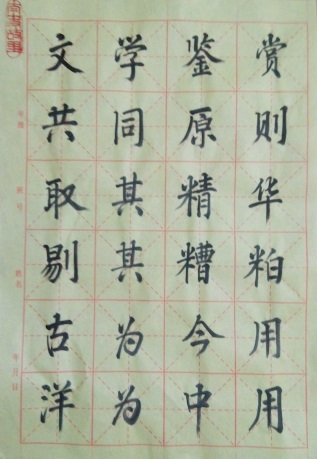 文学鉴赏
共同原则
取其精华
剔其糟粕
古为今用
洋为中用